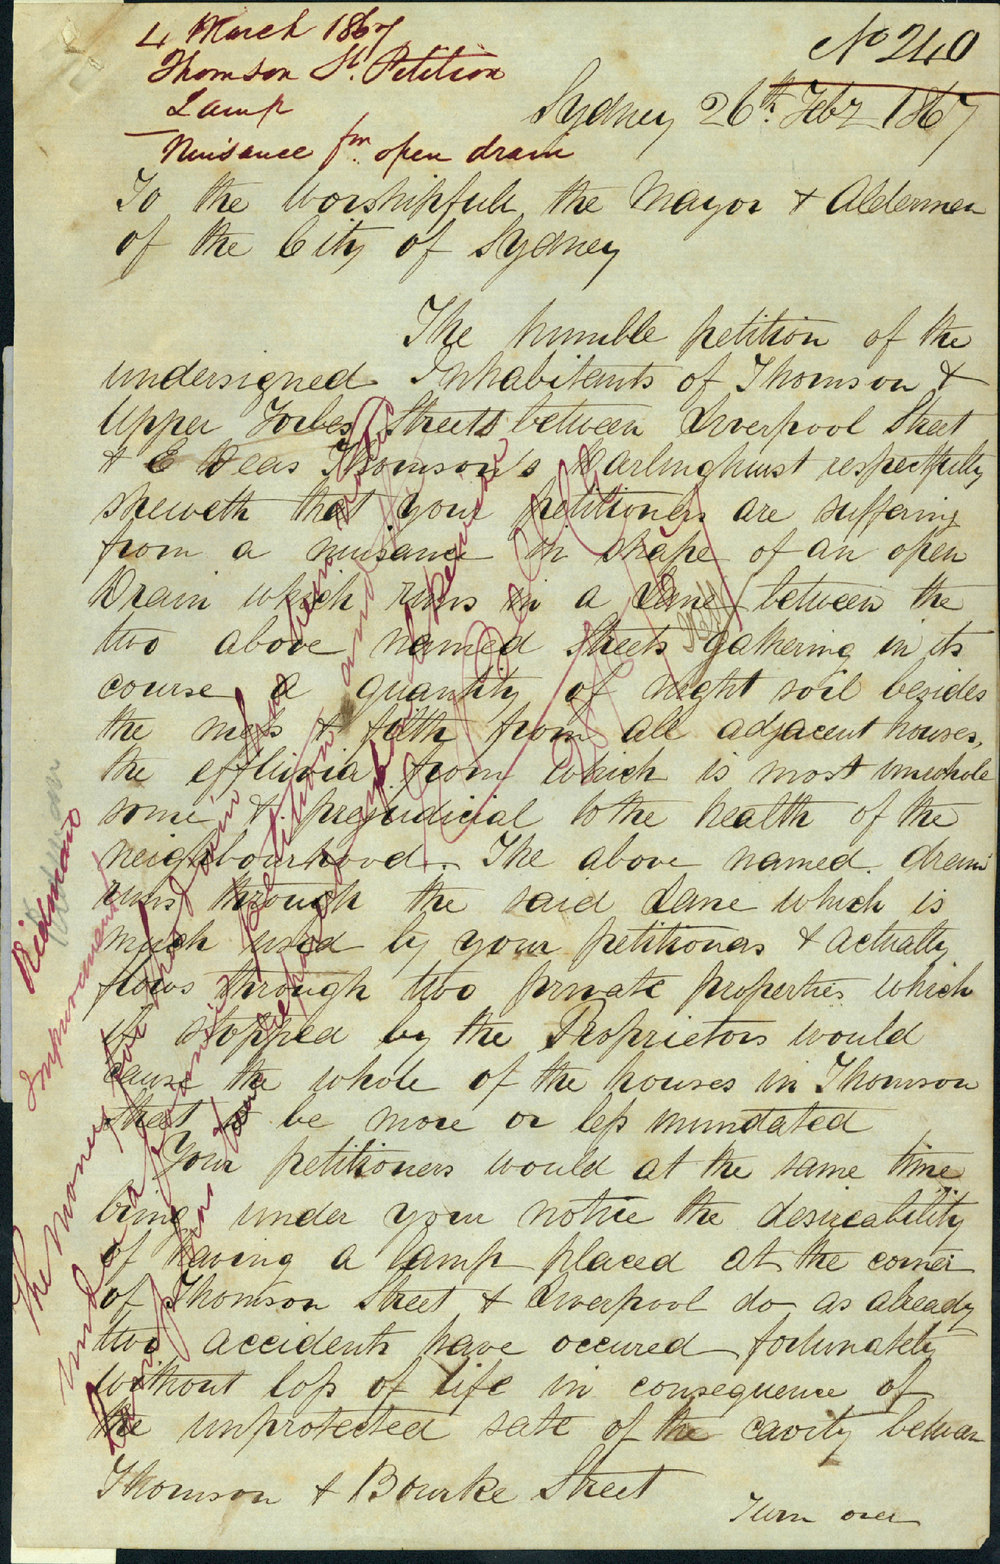 4 March 1867
Thomson St. Petition
Lamp
Nuisance fm. open drain
No 240
Sydney 26th. Feby 1867
To the Worshipfull the Mayor & Aldermen
of the City of Sydney
The humble petition of the
undersigned Inhabitants of Thomson &
Upper Forbes Streets between Liverpool Street
& E Deas Thomson's Darlinghurst respectfully
sheweth that your petitioners are suffering
from a nuisance in shape of an open
Drain which runs in a Lane between the
two above named Streets gathering in its
course a quantity of night soil besides
the mess & filth from all adjacent houses,
the effluvia from which is most unwhole
some & prejudicial to the health of the
neighbourhood. The above named drain
runs through the said Lane which is
much used by your petitioners & actually
flows through two private properties which
if stopped by the Proprietors would
cause the whole of the houses in Thomson
Street to be more or less inundated
Your petitioners would at the same time
bring under your notice the desireability
of having a lamp placed at the corner
of Thomson Street & Liverpool do as already
two accidents have occured fortunately
without loss of life in consequence of
the unprotected sate of the cavity between
Thomson & Bourke Street
Turn over
Redman
Improvement
The money for this drain has been voted
under a former petition and the
Lamp has been replaced